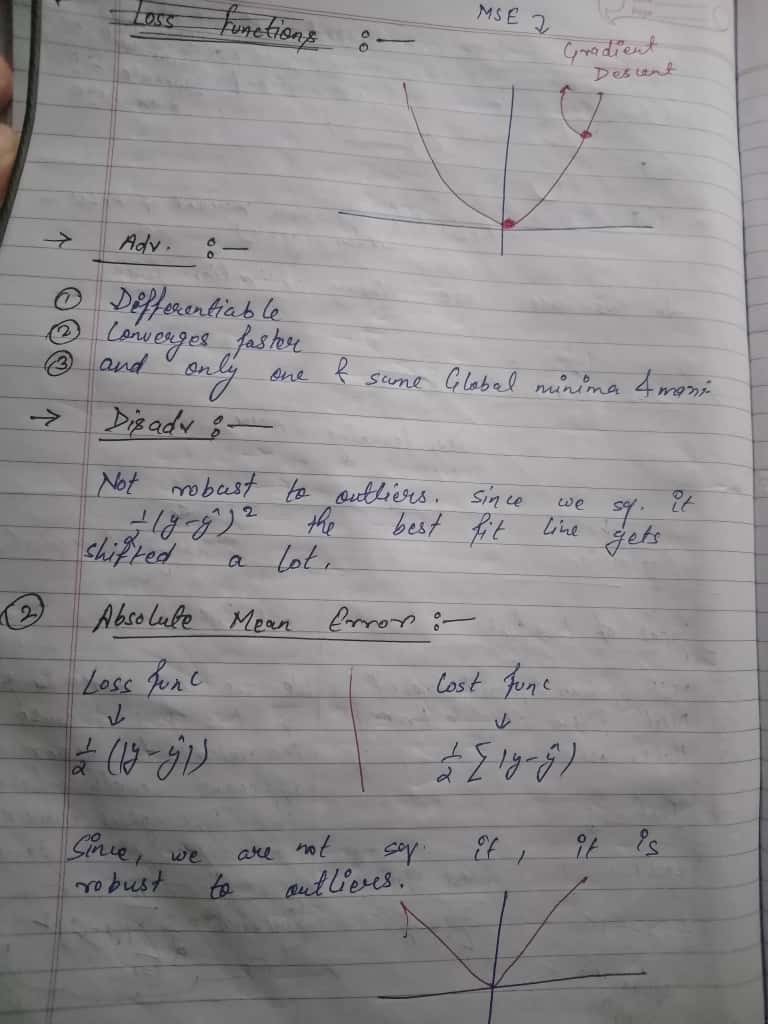 Loss functions :—
MSE
Gradient
Descent
→ Adv. :—
① Differentiable
② Converges faster
③ and only one & same Global minima
→ Disadv :—
Not robust to outliers. Since we sq. it
½(y-ŷ)² the best fit line gets
shifted a lot.
② Absolute Mean Error :—
Loss func
↓
½ (|y-ŷ|)
Cost func
↓
½ Σ |y-ŷ)
Since, we are not sq. it, it is
robust to outliers.